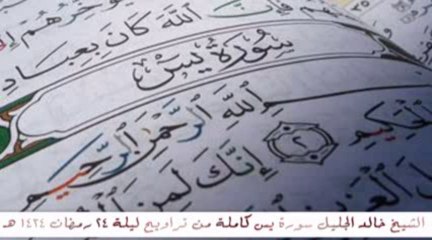 فَإِنَّ ٱللَّهَ كَانَ بِعِبَادِ
سُورَةُ يسٓ
ٱللَّهِ ٱلرَّحْمَٰنِ ٱلرَّحِيمِ
ٱلْحَكِيمِ ٢ إِنَّكَ لَمِنَ
الشيخ خالد الجليل سورة يس كاملة من تراويح ليلة ٢٤ رمضان ١٤٢٤ هـ